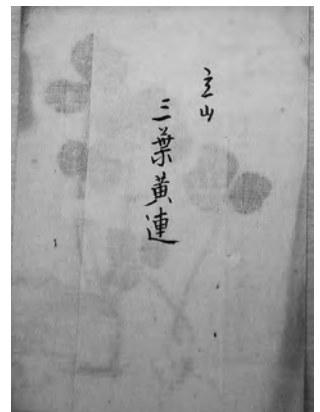 立山
三葉黄連